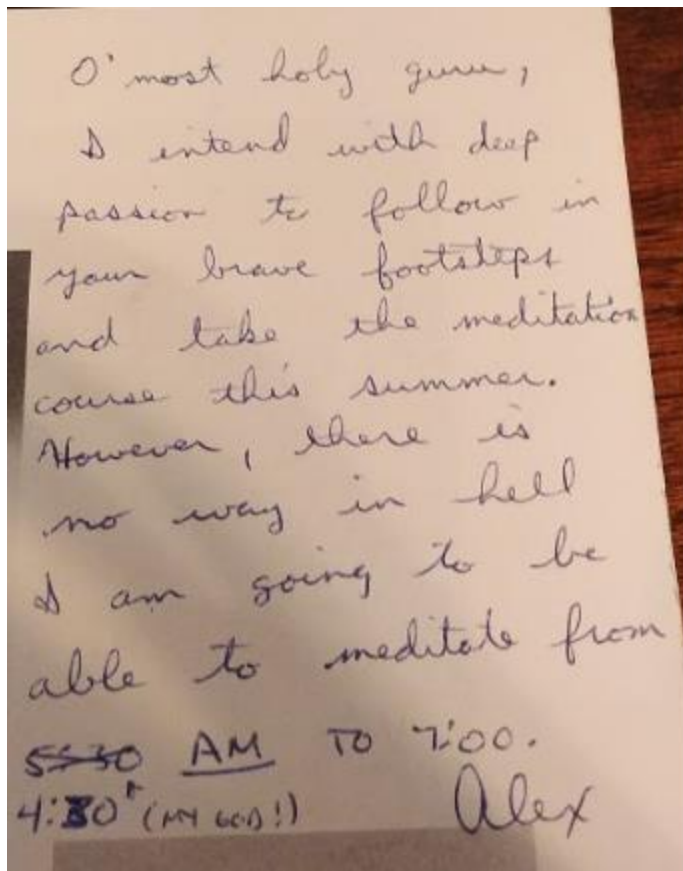 O' most holy guru,
I intend with deep
passion to follow in
your brave footsteps
and take the meditation
course this summer.
However, there is
no way in hell
I am going to be
able to meditate from
5:30 AM TO 7:00.
4:30 (MY GOD!) Alex